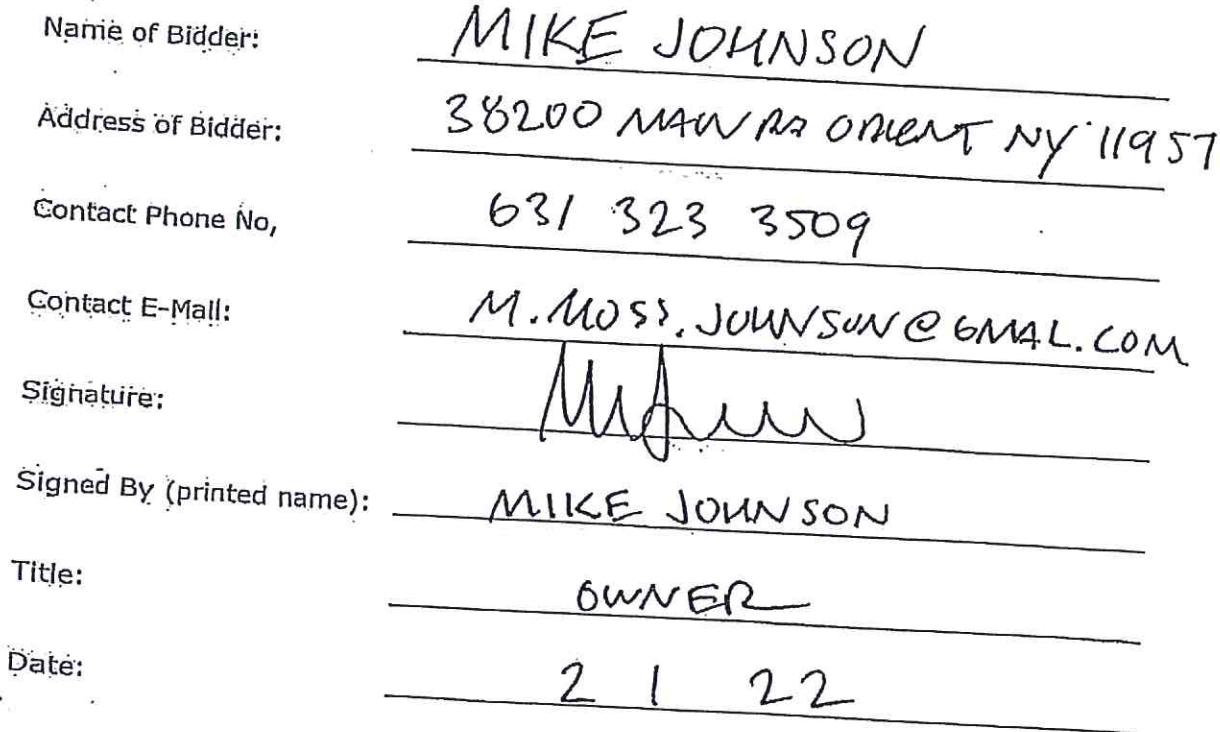 Name of Bidder: MIKE JOHNSON
Address of Bidder: 38200 MAIN RD ORIENT NY 11957
Contact Phone No, 631 323 3509
Contact E-Mail: M.MOSS.JOHNSON@GMAL.COM
Signature:
Signed By (printed name): MIKE JOHNSON
Title: OWNER
Date: 2 1 22